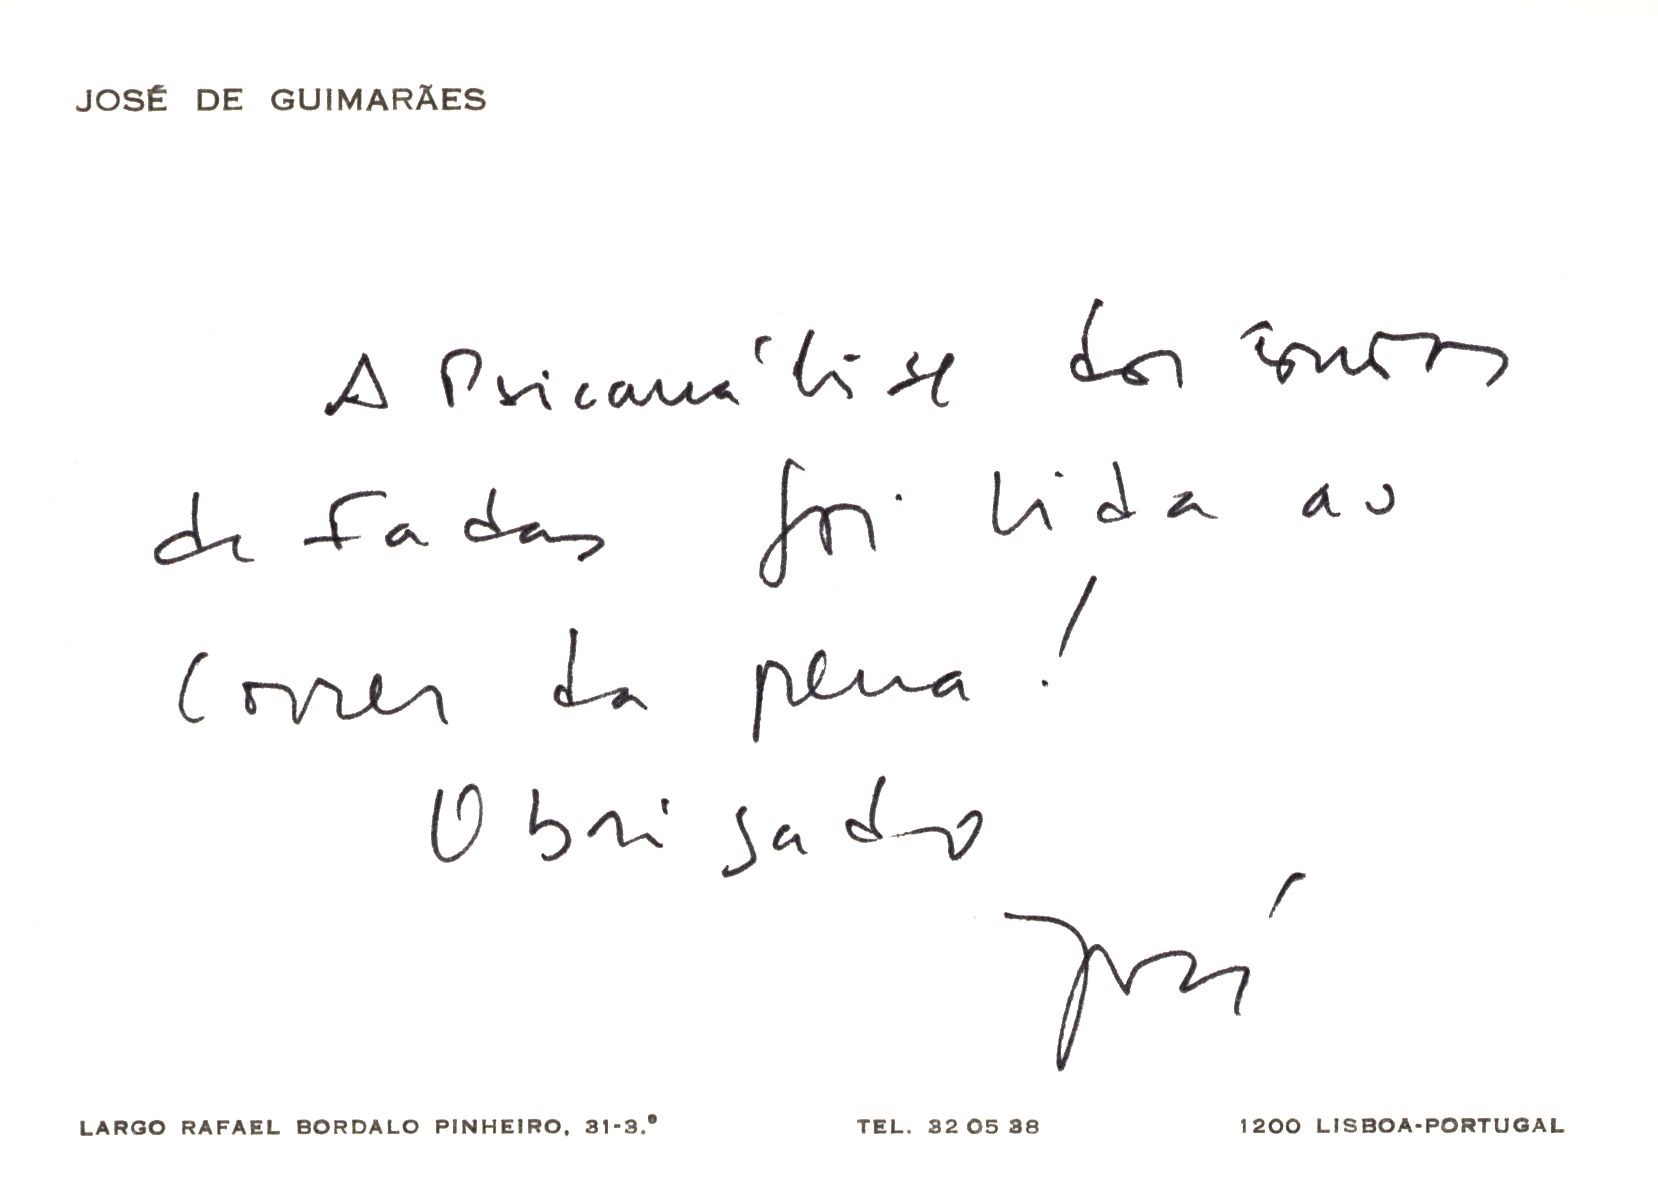 JOSÉ DE GUIMARÃES
A Psicanálise dos contos
de Fadas foi lida ao
correr da pena!
Obrigado
José
LARGO RAFAEL BORDALO PINHEIRO, 31-3.º TEL. 32 05 38 1200 LISBOA-PORTUGAL